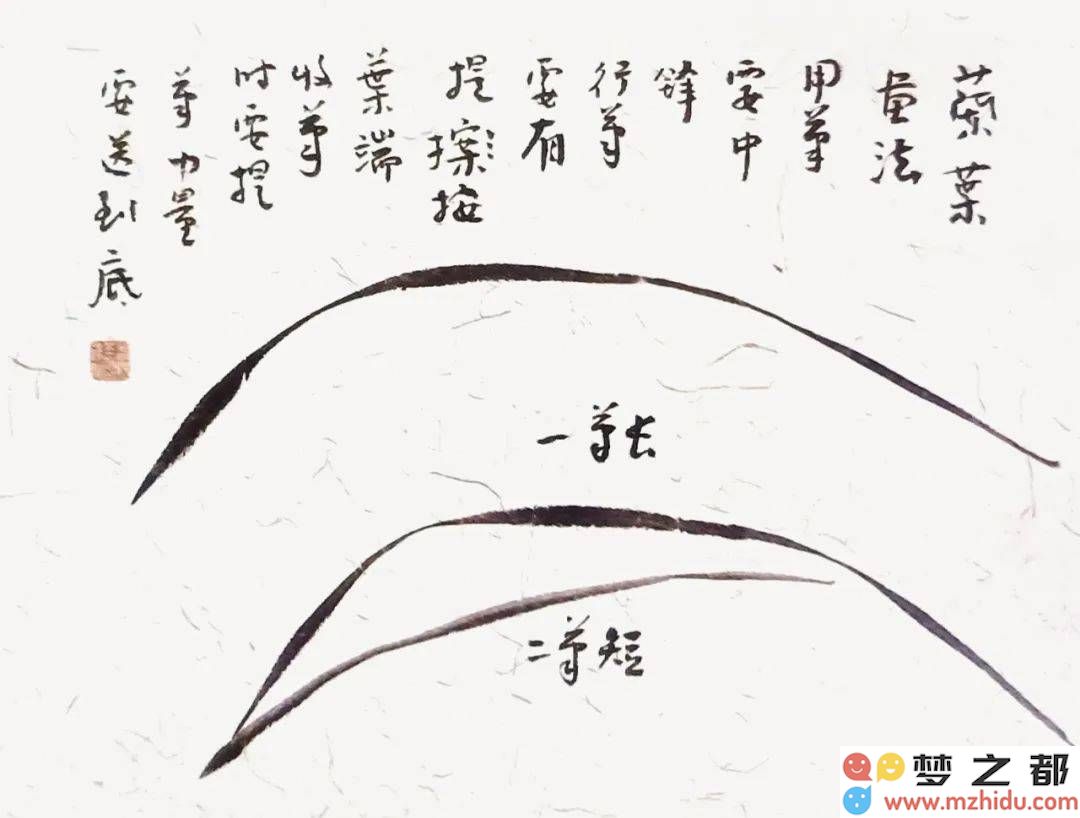 蘭葉
畫法
用筆
要中
鋒
行筆
要有
提按
葉端
收筆
时要提
筆力量
要送到底
一筆长
二筆短
梦之都
www.mzhidu.com